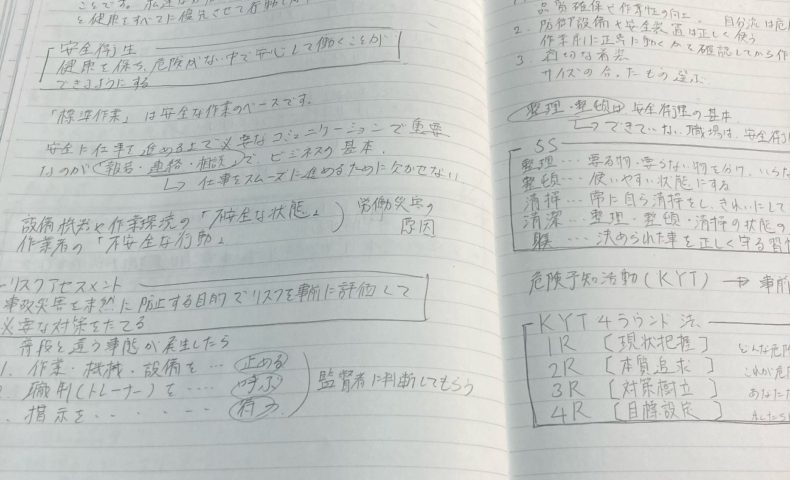 と健康をすべてに優先させて行動
安全衛生
健康を保ち、危険がない中で安心して働くことが
できるようにする
「標準作業」は安全な作業のベースです。
安全に仕事を進める上で必要なコミュニケーションで重要
なのが「報告・連絡・相談」で、ビジネスの基本。
↳ 仕事をスムーズに進めるために欠かせない
設備機器や作業環境の「不安全な状態」
作業者の「不安全な行動」
労働災害の
原因
リスクアセスメント
事故災害を未然に防止する目的でリスクを事前に評価して
必要な対策をたてる
普段と違う事態が発生したら
1. 作業・機械・設備を… 止める
職制(トレーナー)を…. 呼ぶ
指示を・・・・・・ 待つ
監督者に判断してもらう
品質確保や作業性の向上.
2. 防护設備や安全装置は正しく使う
作業前に正常に動くかを確認してから作
3. 適切な着装
サイズの合ったもの選ぶ.
整理・整頓は安全衛生の基本
↳ できていない職場は、安全衛
5S
整理… 要る物・要らない物を分け、いらな
整頓… 使いやすい状態にする
清掃… 常に自ら清掃をし、きれいにして
清潔… 整理・整頓・清掃の状態の
躾 … 決められた事を正しく守る習慣
危険予知活動(KYT) → 事前
KYT4ラウンド法
1R [現状把握] どんな危険
2R [本質追求] これが危
3R [対策樹立] あなた
4R [目標設定]